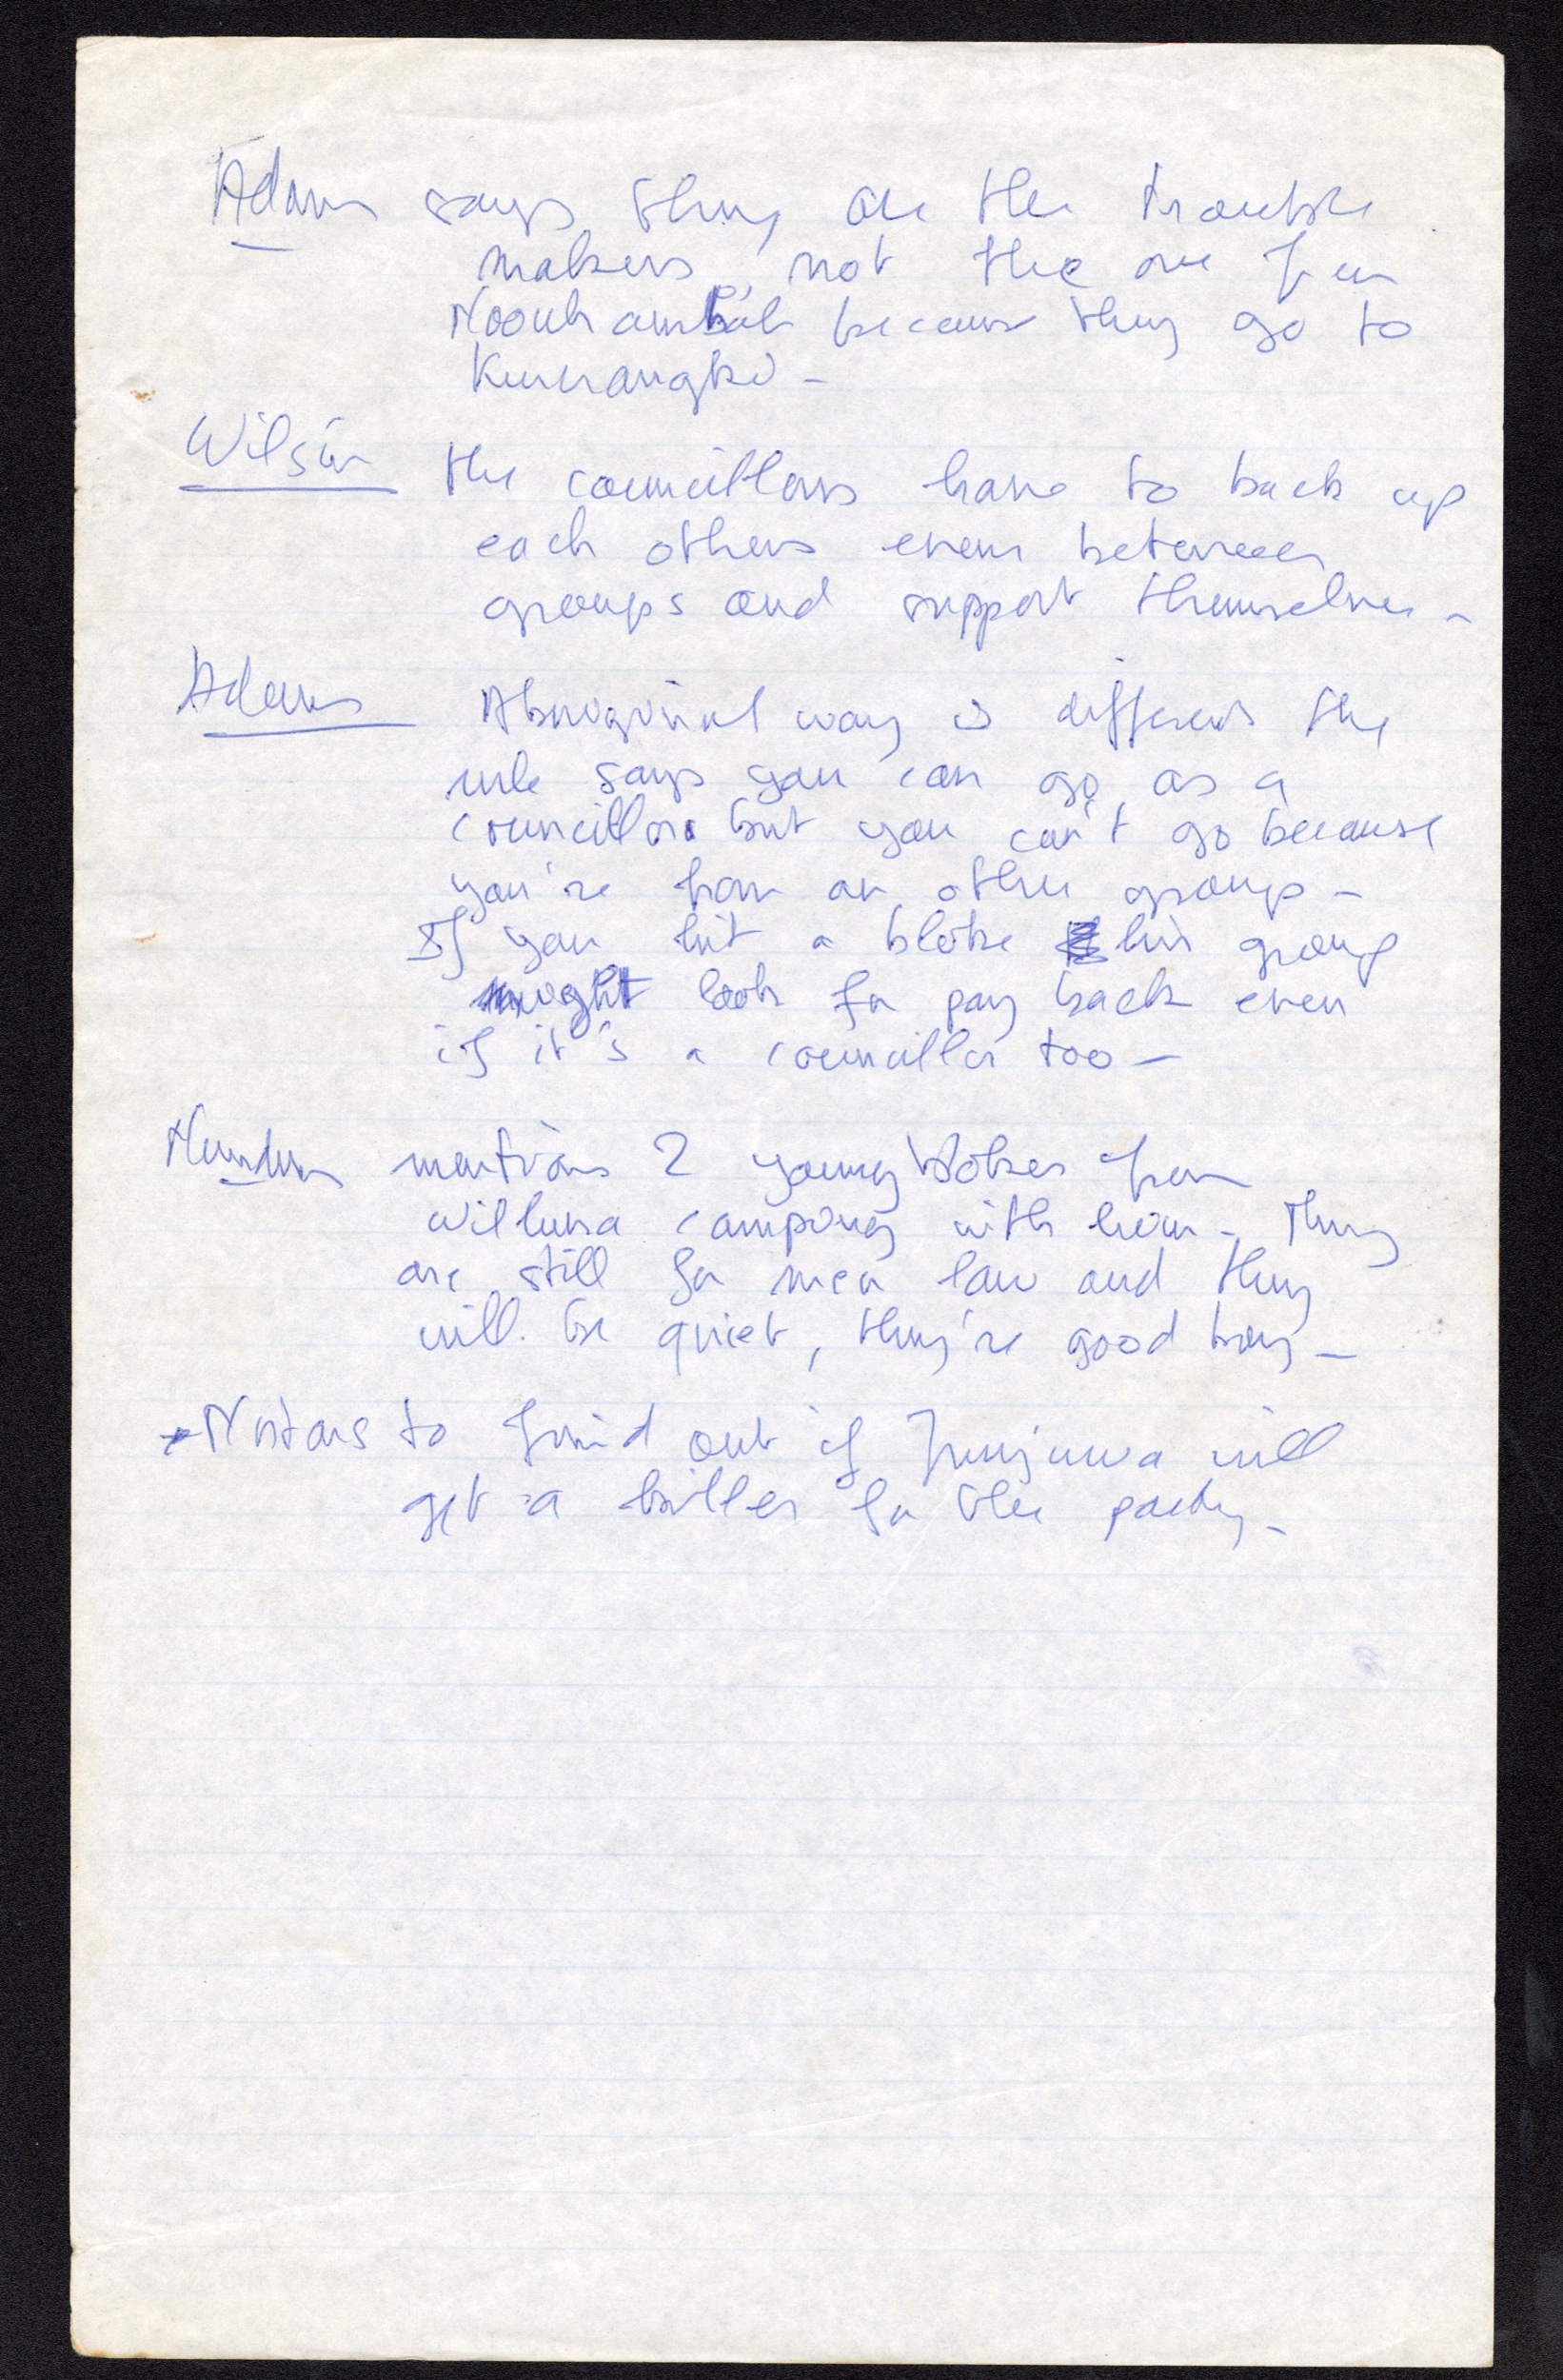 Adam says they are the trouble
makers, not the one from
Noonkanbah because they go to
Kurnangki -
Wilson the councillors have to back up
each others even between
groups and support themselves -
Adam Aboriginal way is different the
rule says you can go as a
councillor but you can't go because
you're from an other group -
If you hit a bloke his group
might look for pay back even
if it's a councillor too -
mentions 2 young blokes from
Wiluna camping with him - They
are still for men law and they
will be quiet, they're good boy -
to find out if Junjuwa will
get a killer for the party -